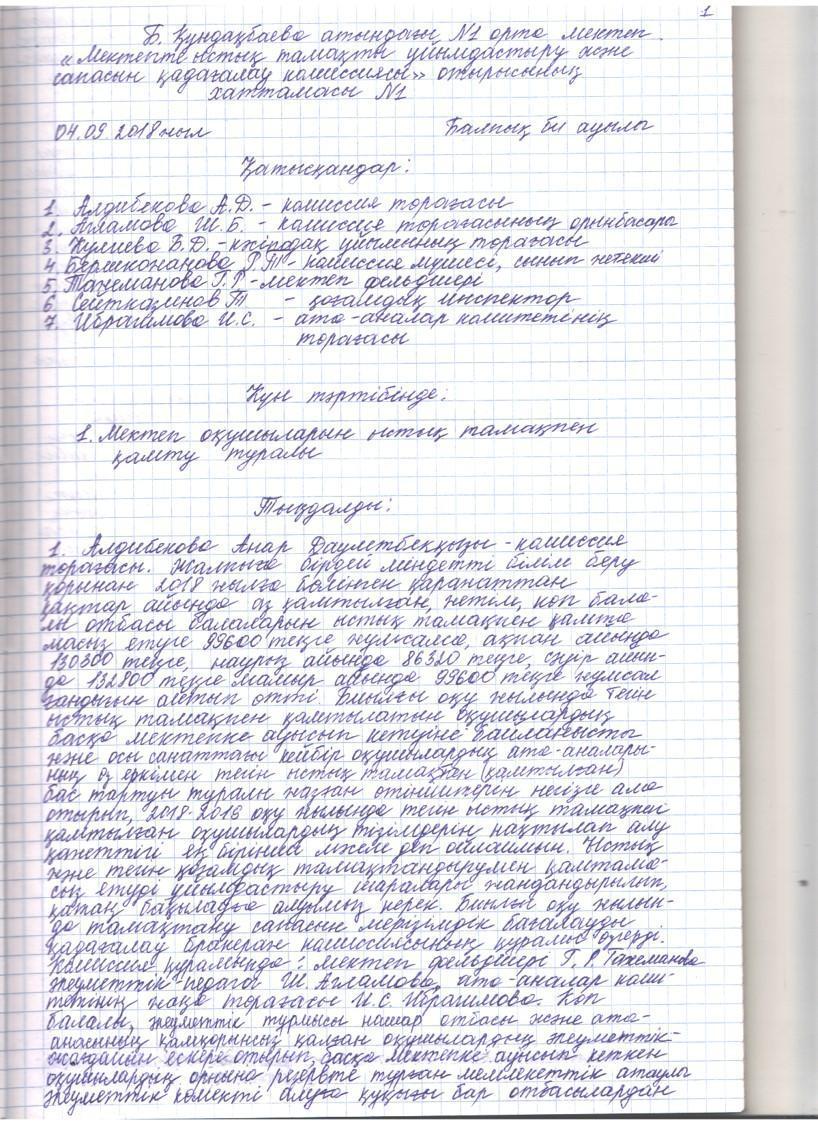 1
Б. Құндақбаева атындағы №1 орта мектеп
«Мектепте ыстық тамақты ұйымдастыру және
сапасын қадағалау комиссиясы» отырысының
хаттамасы №1
04.09 2018 жыл Балпық би ауылы
Қатысқандар:
1. Алдибекова А.Д. - комиссия торағасы
2. Агламова Ш.Б. - комиссия торағасының орынбасары
3. Кулиева В.Д. - кәсіподақ ұйымының торағасы
4. Г.Т - комиссия мүшесі, сынып жетекші
5. Тажеманова Г.Р - мектеп фельдшері
6 Сейтказинов Т - қоғамдық инспектор
7. Ибрагимова И.С. - ата-аналар комитетінің
торағасы
Күн тәртібінде:
1. Мектеп оқушыларын ыстық тамақпен
қамту туралы
Тыңдалды:
1. Алдибекова Анар Даулетбекқызы - комиссия
торағасы. Жалпыға бірдей міндетті білім беру
қорынан 2018 жылға бөлінген қаражаттан
қаңтар айында аз қамтылған, жетім, көп бала-
лы отбасы балаларын ыстық тамақпен қамта-
масыз етуге 99600 теңге жұмсалса, ақпан айында
130300 теңге, наурыз айында 86320 теңге, сәуір айын-
да 132800 теңге мамыр айында 99600 теңге жұмсал
ғандығын айтып өтті. Биылғы оқу жылында тегін
ыстық тамақпен қамтылатын оқушылардың
басқа мектепке ауысып кетуіне байланысты
және осы санаттағы кейбір оқушылардың ата-аналары-
ның өз еркімен тегін ыстық тамақтан (қамтылған)
бас тартуы туралы жазған өтініштерін негізге ала
отырып, 2018-2016 оқу жылында тегін ыстық тамақпен
қамтылған оқушылардың тізімдерін нақтылап алу
қажеттігі ең бірінші мәселе деп ойлаймын. Ыстық
және тегін қоғамдық тамақтандырумен қамтама-
сыз етуді ұйымдастыру шаралары жандандырылып,
қатаң бақылауға алуымыз керек. Биылғы оқу жылын-
да тамақтану сапасын мерізімдік бағалауды
қадағалау бракераж комиссиясының құрамы өзгерді.
Комиссия құрамында: мектеп фельдшері Г.Р. Тажеманова
әлеуметтік-педагог Ш. Агламова, ата-аналар коми-
тетінің жаңа торағасы И.С. Ибрагимова. Көп
балалы, әлеуметтік тұрмысы нашар отбасы және ата-
анасының қамқорынсыз қалған оқушылардың әлеуметтік-
жағдайын ескере отырып, басқа мектепке ауысып кеткен
оқушылардың орнына резервте тұрған мемлекеттік атаулы
әлеуметтік көмекті алуға құқығы бар отбасылардан